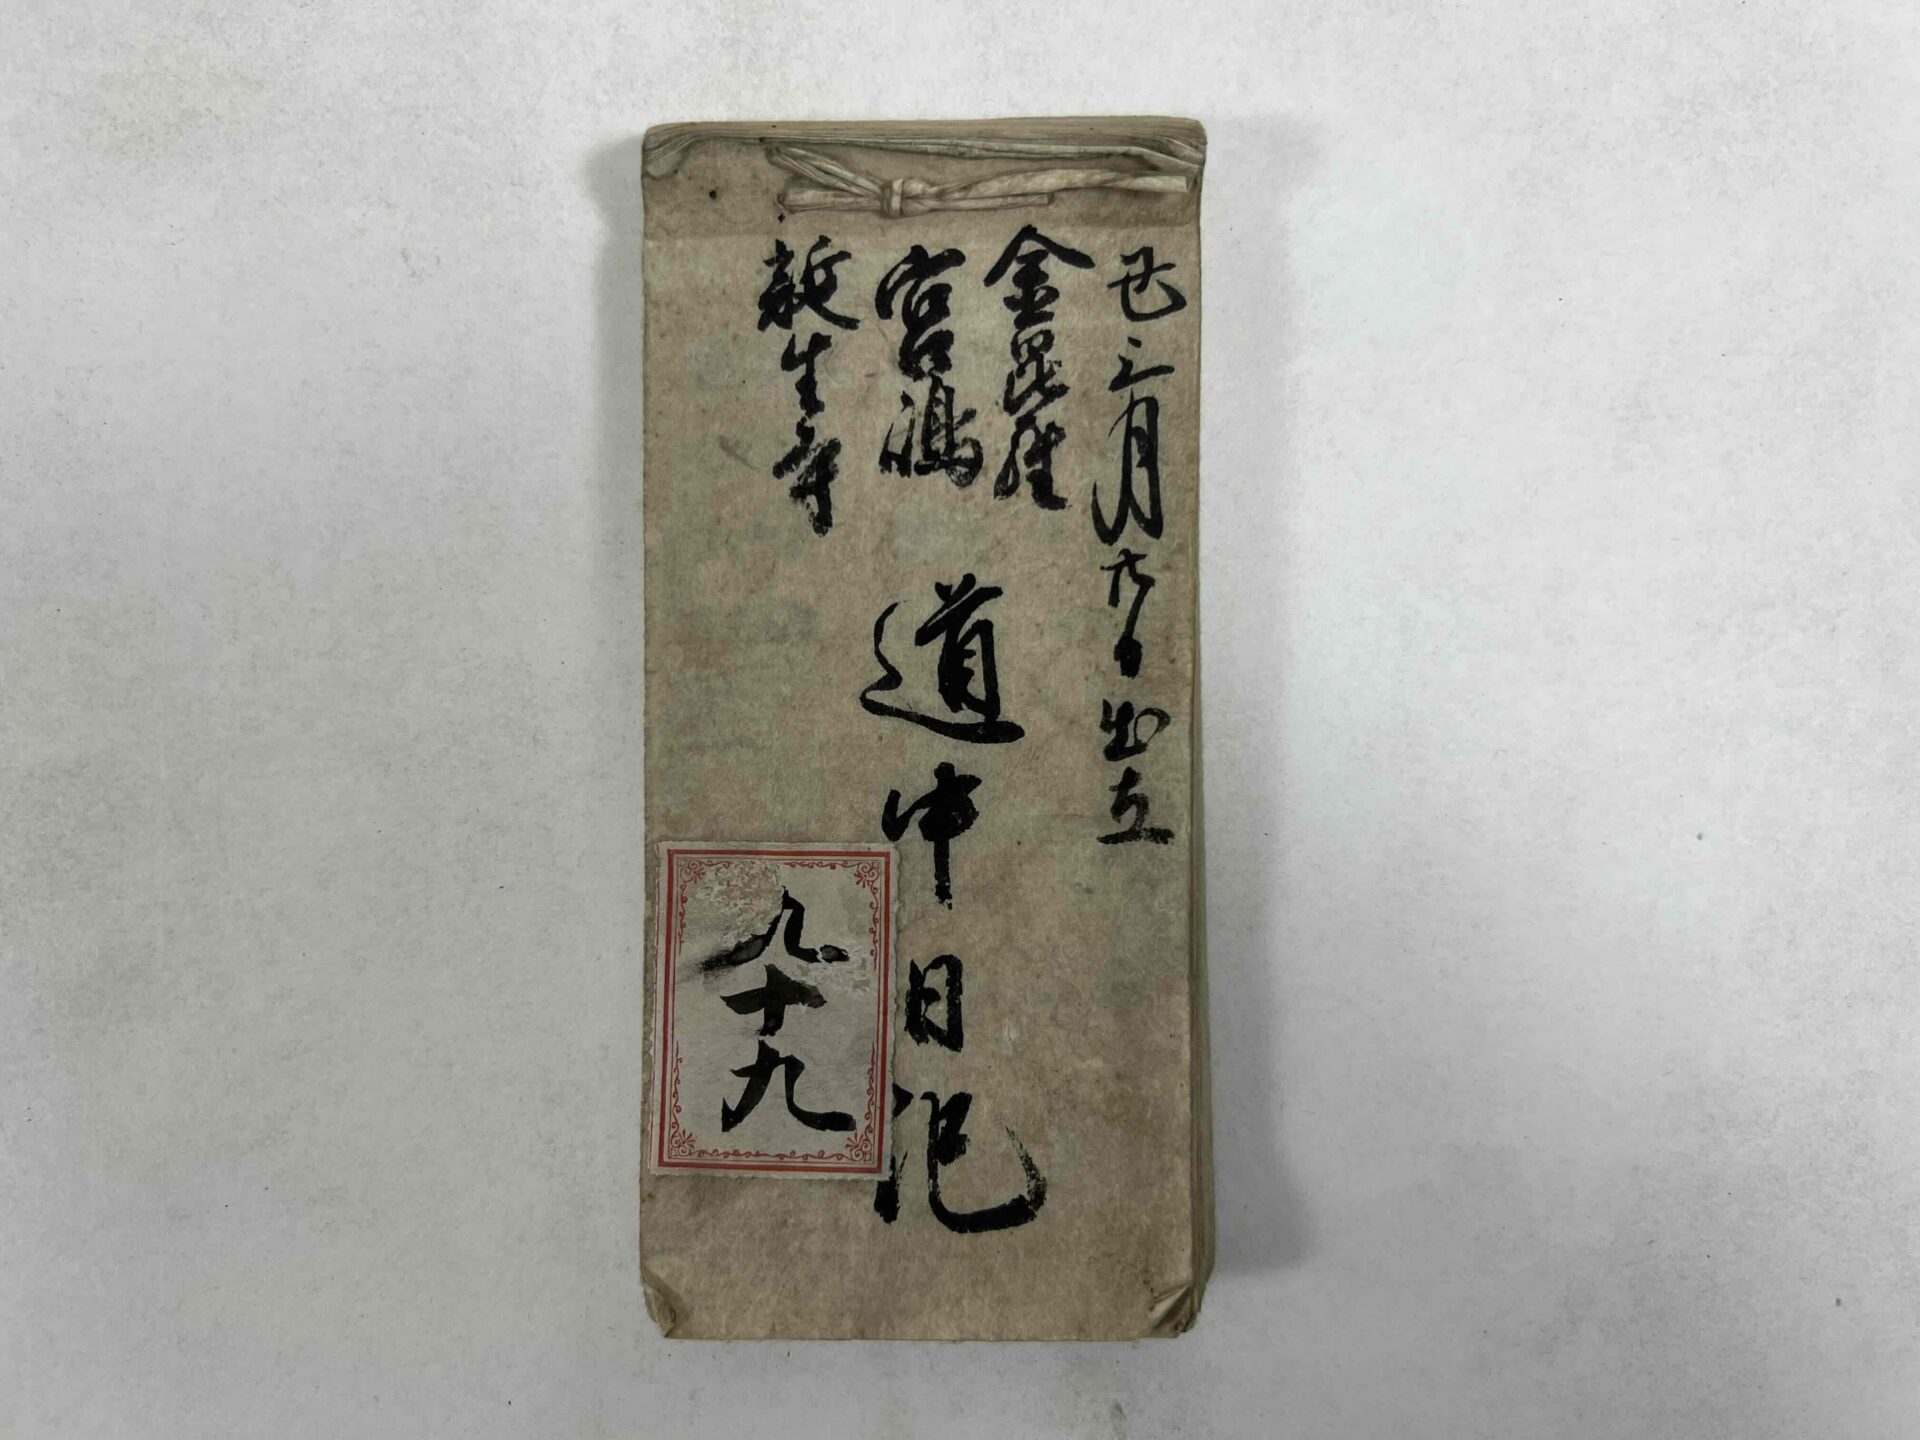 巳三月廿六日出立
金毘羅
宮嶋
誕生寺
道中日记
九十九